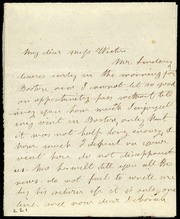 My dear Miss Weston
Mr. Lindsay
leaves early in the morning for
Boston, and I cannot let so good
an opportunity pass without tel-
ling you how much I enjoyed
my visit in Boston, only that
it was not half long enough, &
how much I depend on your
visit here do not disappoint
us. Mrs. will tell you all the
news, do not fail to write me
by his return if it is only one
line, and now dear